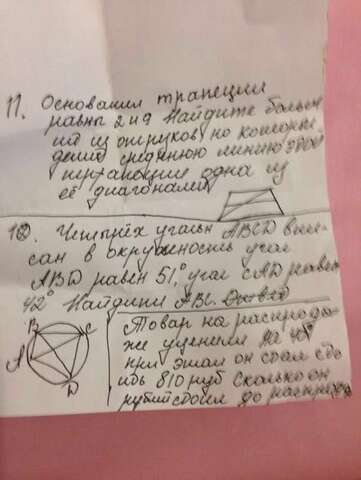 11. Основания трапеции
равны 2 и 9 Найдите больш
ий из отрезков, на которы
делит среднюю линию этой
трапеции одна из
её диагоналей
12. Четырёх угольн ABCD впи-
сан в окружность угол
ABD равен 51,° угол CAD равен
42° Найдите ABC.
B C
A
D
Товар на распрода-
же уценили на 40%
при этом он стал сто
ить 810 руб Сколько он
рублей стоил до распрода